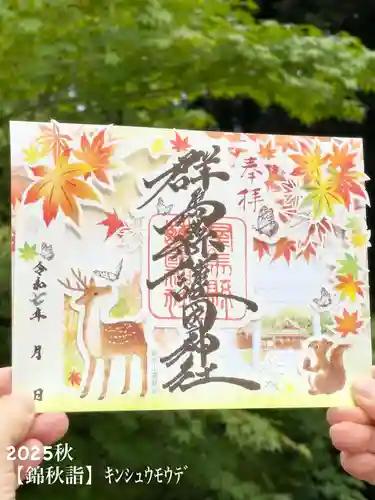 奉拝
群馬県護國神社
令和七年 月 日
2025秋
【錦秋詣】ｷﾝｼｭｳﾓｳﾃﾞ